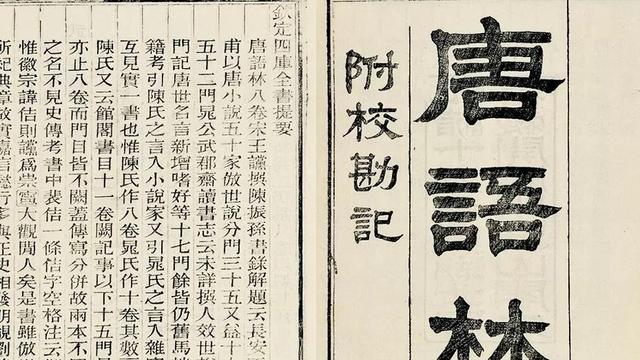 唐語林
附校勘記
欽定四庫全書提要
唐語林八卷宋王讜撰陳振孫書錄解題云長安
甫以唐小說五十家倣世說分門三十五又益十
五十二門晁公武郡齋讀書志云未詳撰人效世
門記唐世名言新增嗜好等十七門餘皆仍舊馬
籍考引陳氏之言入小說家又引晁氏之言入雜
互見實一書也惟陳氏作八卷晁氏作十卷其數
陳氏又云館閣書目十一卷闕記事以下十五門
亦止八卷而門目皆不闕蓋傳寫分併故兩本不
之名不見史傳考書中裴佶一條佶字空格注云
惟徽宗諱佶則讜為崇寧大觀間人矣是書雖倣
所紀典章故實嘉言懿行多與正史相發明視劉